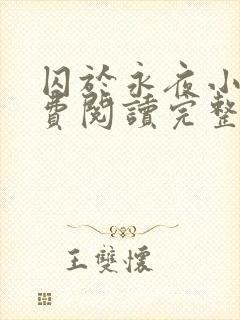 囚於永夜小
費閱讀完整
王雙懷